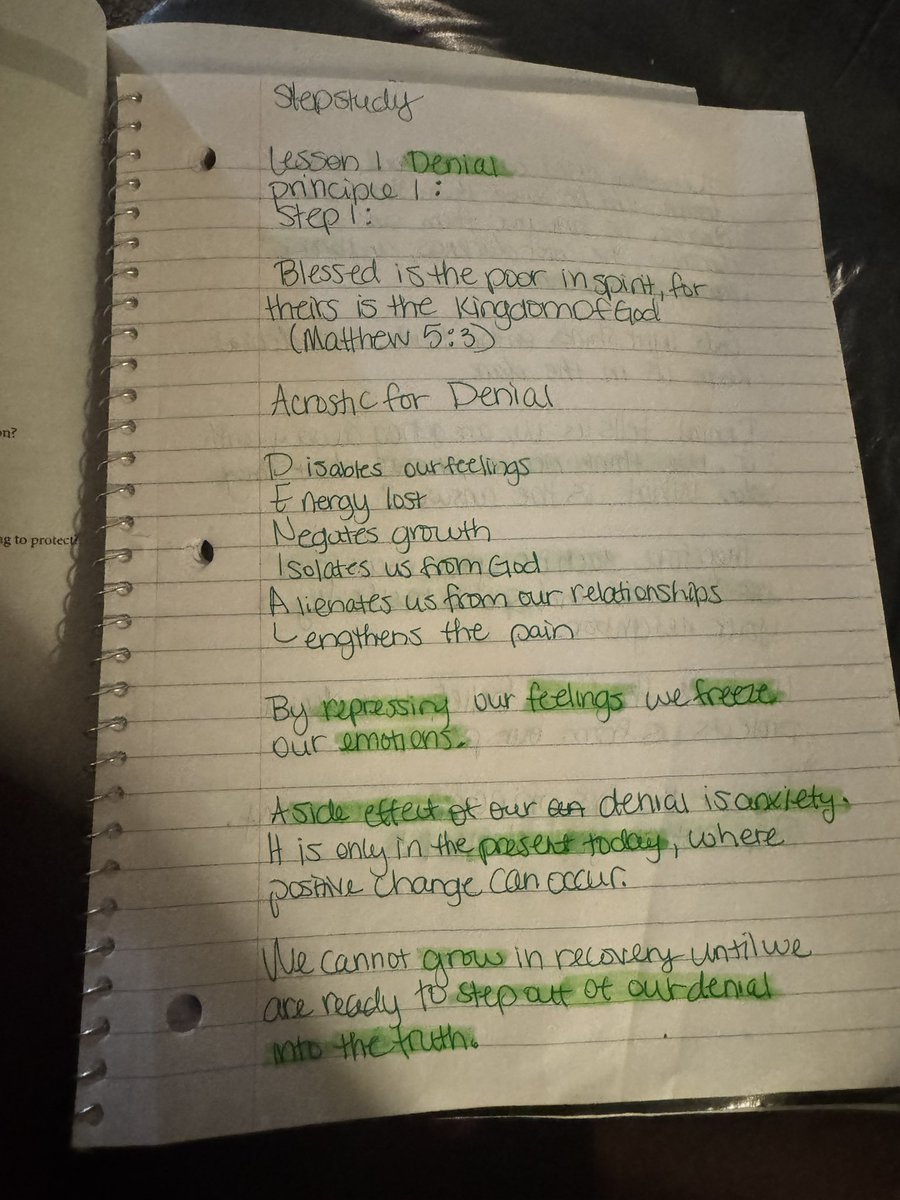 Stepstudy
Lesson 1 Denial
principle 1:
Step 1:
Blessed is the poor in spirit, for
theirs is the Kingdom Of God
(Matthew 5:3)
Acrostic for Denial
Disables our feelings
Energy lost
Negates growth
Isolates us from God
Alienates us from our relationships
Lengthens the pain
By repressing our feelings we freeze
our emotions.
A side effect of our an denial is anxiety.
It is only in the present today, where
positive change can occur.
We cannot grow in recovery until we
are ready to step out of our denial
into the truth.
on?
ng to protect